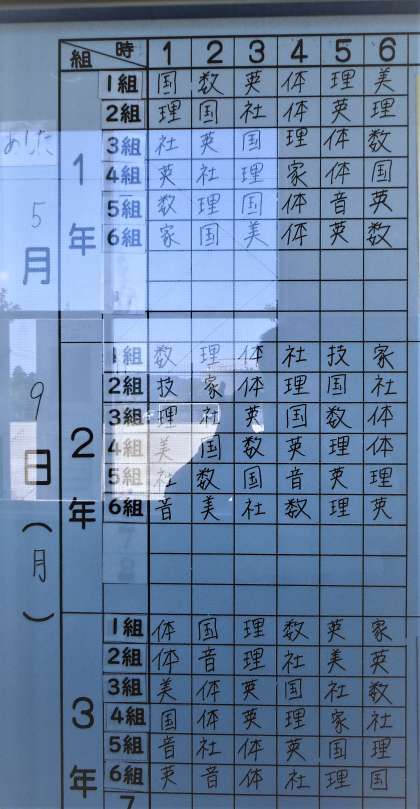 組 時 1 2 3 4 5 6
あした
5月
9日(月)
1年
1組 国 数 英 体 理 美
2組 理 国 社 体 英 理
3組 社 英 国 理 体 数
4組 英 社 理 家 体 国
5組 数 理 国 体 音 英
6組 家 国 美 体 英 数
2年
1組 数 理 体 社 技 家
2組 技 家 体 理 国 社
3組 理 社 英 国 数 体
4組 美 国 数 英 理 体
5組 社 数 国 音 英 理
6組 音 美 社 数 理 英
3年
1組 体 国 理 数 英 家
2組 体 音 理 社 美 英
3組 美 体 英 国 社 数
4組 国 体 英 理 家 社
5組 音 社 体 英 国 理
6組 英 音 体 社 理 国
7